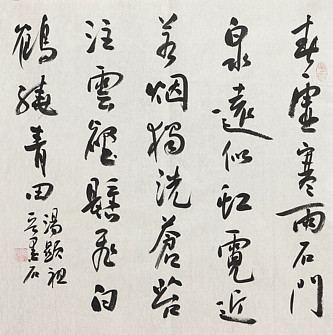 春虛寒雨石門
泉遠似虹霓近
若烟獨洗蒼苔
注雲壑懸飛白
鶴繞青田
湯顯祖
墨石